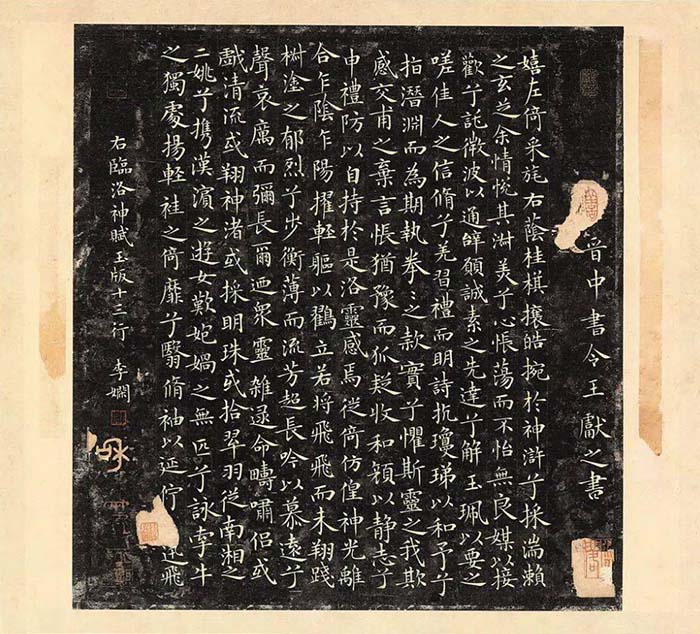 晋中書令王獻之書
嬉左倚采旄右蔭桂棋攘皓捥於神滸兮採湍瀨
之玄芝余情悦其淑美兮心悵蕩而不怡無良媒以接
歡兮託微波以通辭願誠素之先達兮解玉珮以要之
嗟佳人之信脩兮羌習禮而明詩抗瓊珶以和予兮
指潛淵而為期執拳〻之款實兮懼斯靈之我欺
感交甫之棄言悵猶豫而狐疑收和顏以静志兮
申禮防以自持於是洛靈感焉徙倚仿偟神光離
合乍陰乍陽擢輕軀以鶴立若將飛飛而未翔踐
椒塗之郁烈兮步衡薄而流芳超長吟以慕遠兮
聲哀厲而彌長爾迺衆靈雜遝命疇嘯侣或
戲清流或翔神渚或採明珠或拾翠羽從南湘之
二姚兮攜漢濱之遊女歎妑媧之無匹兮詠牽牛
之獨處揚輕袿之倚靡兮翳脩袖以延佇飛
右臨洛神賦玉版十三行 李嫻